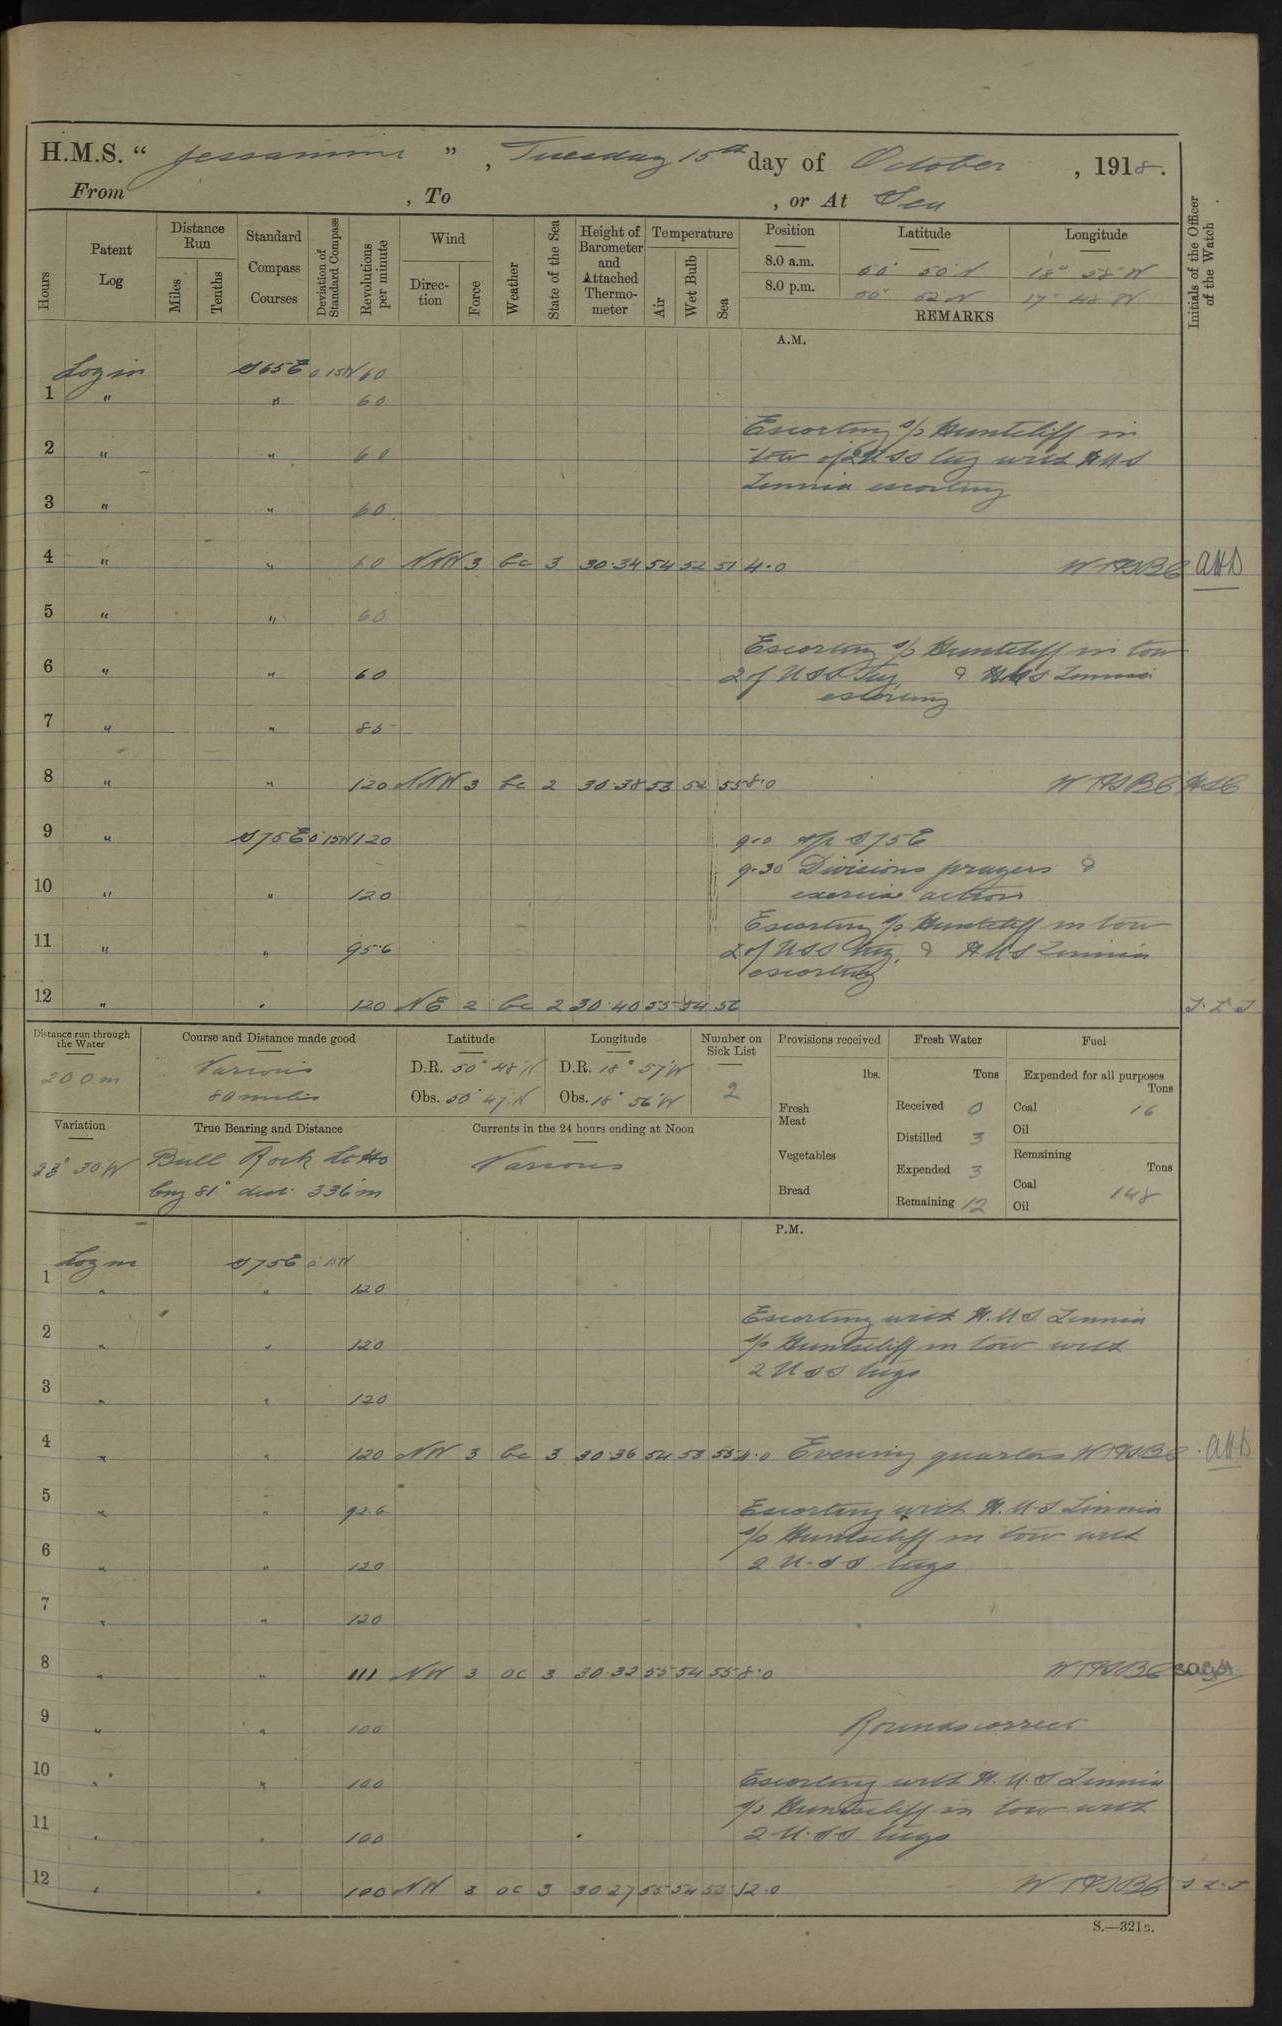 H.M.S. “ Jessamine ” , Tuesday 15th day of October , 1918.
From , To , or At Sea
Hours
Patent Log
Distance Run
Miles
Tenths
Standard Compass Courses
Deviation of Standard Compass
Revolutions per minute
Wind
Direction
Force
Weather
State of the Sea
Height of Barometer and Attached Thermometer
Temperature
Air
Wet Bulb
Sea
Position
Latitude
Longitude
8.0 a.m. 50° 50' N 18° 58' W
8.0 p.m. 50° 52' N 17° 48' W
REMARKS
Initials of the Officer of the Watch
A.M.
Log in S65E 0.15W 60
1 " " 60
Escorting s/s Huntcliff in
2 " " 60 tow of 2 USS tug with HMS
Zinnia escorting
3 " " 60
4 " " 60 NNW 3 bc 3 30.34 54 52 51 4.0 WTHSBC AHD
5 " " 60
Escorting s/s Huntcliff in tow
6 " " 60 2 of USS Tug & HMS Zinnia
escorting
7 " " 85
8 " " 120 NNW 3 bc 2 30.38 53 52 55 8.0 WTHSBC HSC
9 " S75E 0.15W 120 9.0 a/c S75E
9.30 Divisions prayers &
10 " " 120 exercise action
Escorting s/s Huntcliff in tow
11 " " 95.6 2 of USS tug, & HMS Zinnia
escorting
12 " " 120 NE 2 bc 2 30.40 55 54 56
Distance run through the Water
200m
Course and Distance made good
Various
80 miles
Latitude
D.R. 50° 48' N
Obs. 50° 47' N
Longitude
D.R. 18° 57' W
Obs. 18° 56' W
Number on Sick List
2
Provisions received
lbs.
Fresh Meat
Vegetables
Bread
Fresh Water
Tons
Received 0
Distilled 3
Expended 3
Remaining 12
Fuel
Expended for all purposes
Tons
Coal 16
Oil
Remaining
Tons
Coal 148
Oil
Variation
23° 30' W
True Bearing and Distance
Bull Rock Lt Ho
brg 81° dist. 336 m
Currents in the 24 hours ending at Noon
Various
P.M.
Log in S75E
1 " " 120
Escorting with H.M.S Zinnia
2 " " 120 s/s Huntscliff in tow with
2 USS tugs
3 " " 120
4 " " 120 NW 3 bc 3 30.36 54 53 55 4.0 Evening quarters WTHSBC AHD
5 " " 92.6 Escorting with H.M.S Zinnia
s/s Huntscliff in tow with
6 " " 120 2 U.S.S tugs
7 " " 120
8 " " 111 NW 3 oc 3 30.32 55 54 55 8.0 WTHSBC
9 " " 100 Rounds correct
10 " " 100 Escorting with H.M.S Zinnia
s/s Huntscliff in tow with
11 " " 100 2 U.S.S tugs
12 " " 100 NW 3 oc 3 30.27 55 54 53 12.0 WTHSBC
S.—321B.